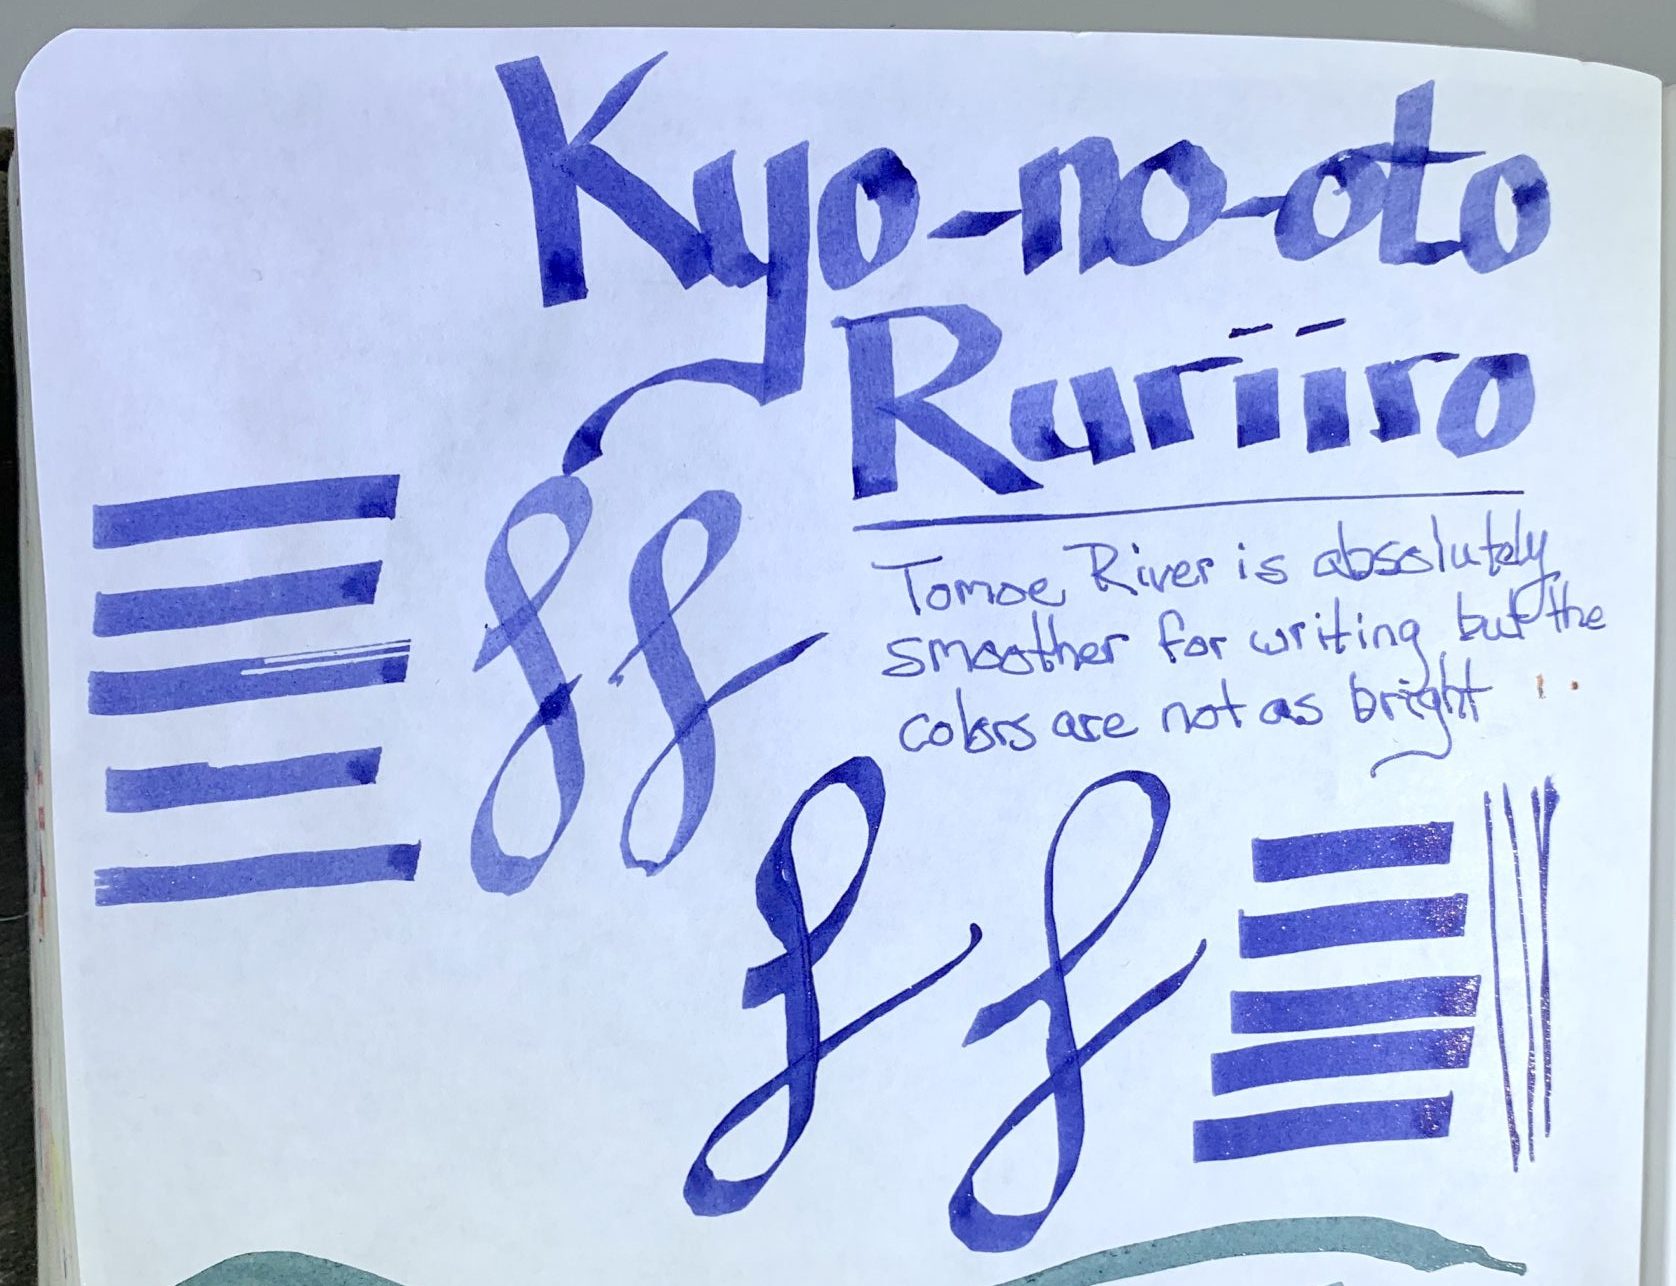 Kyo-no-oto
Rurīīro
Tomoe River is absolutely
smoother for writing but the
colors are not as bright
f f
f f